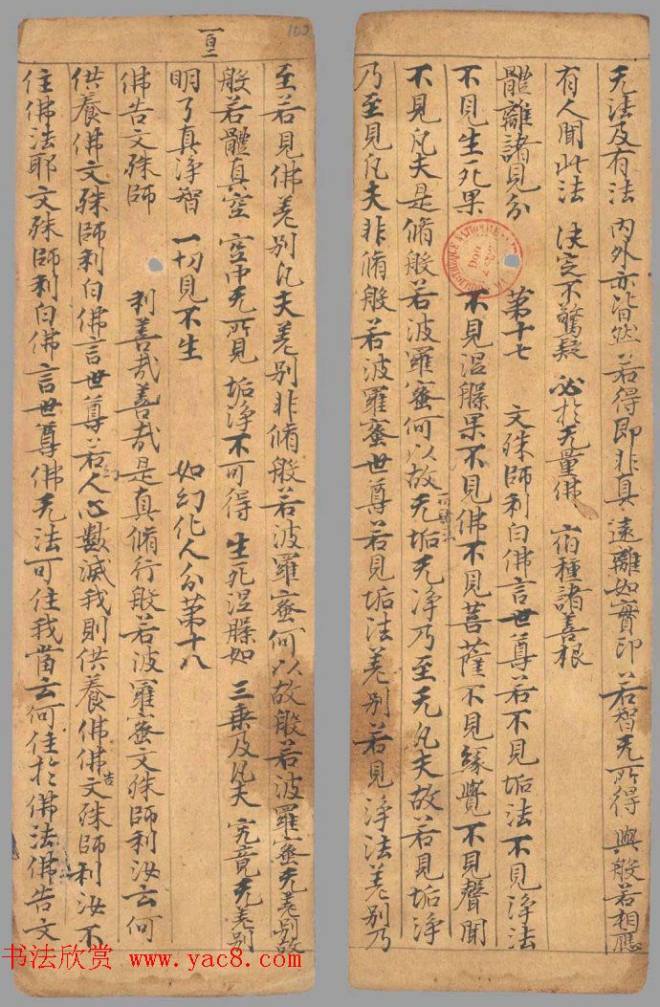 无法及有法 内外亦皆然 若得即非真 遠離如實印 若智无所得 與般若相應
有人聞此法 決定不驚疑 必於无量佛 宿種諸善根
體離諸見分 第十七 文殊師利白佛言世尊若不見垢法不見淨法
不見生死果 不見涅槃果不見佛不見菩薩不見緣覺不見聲聞
不見凡夫是脩般若波羅蜜何以故无垢无淨乃至无凡夫故若見垢淨
乃至見凡夫非脩般若波羅蜜世尊若見垢法差别若見淨法差别乃
百二
103
至若見佛差别凡夫差别非脩般若波羅蜜何以故般若波羅蜜无差别故
般若體真空 空中无所見 垢淨不可得 生死涅槃如 三乘及凡夫 究竟无差别
明了真淨智 一切見不生 如幻化人分第十八
佛告文殊師 利善哉善哉是真脩行般若波羅蜜文殊師利汝云何
供養佛文殊師利白佛言世尊若幻人心數滅我則供養佛佛告文殊師利汝不
住佛法耶文殊師利白佛言世尊佛无法可住我當云何住於佛法佛告文
书法欣赏 www.yac8.com